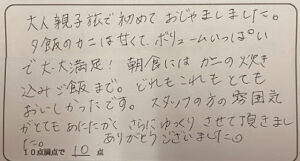 大人親子旅で初めておじゃましました。
夕飯のカニは甘くて、ボリュームいっぱい
で大・大満足！朝食にはカニの炊き
込みご飯まで。どれもこれもとても
おいしかったです。スタッフの方の雰囲気
がとてもあたたかくさらにゆっくりさせて頂きまし
た。ありがとうございました。
10点満点で 10 点